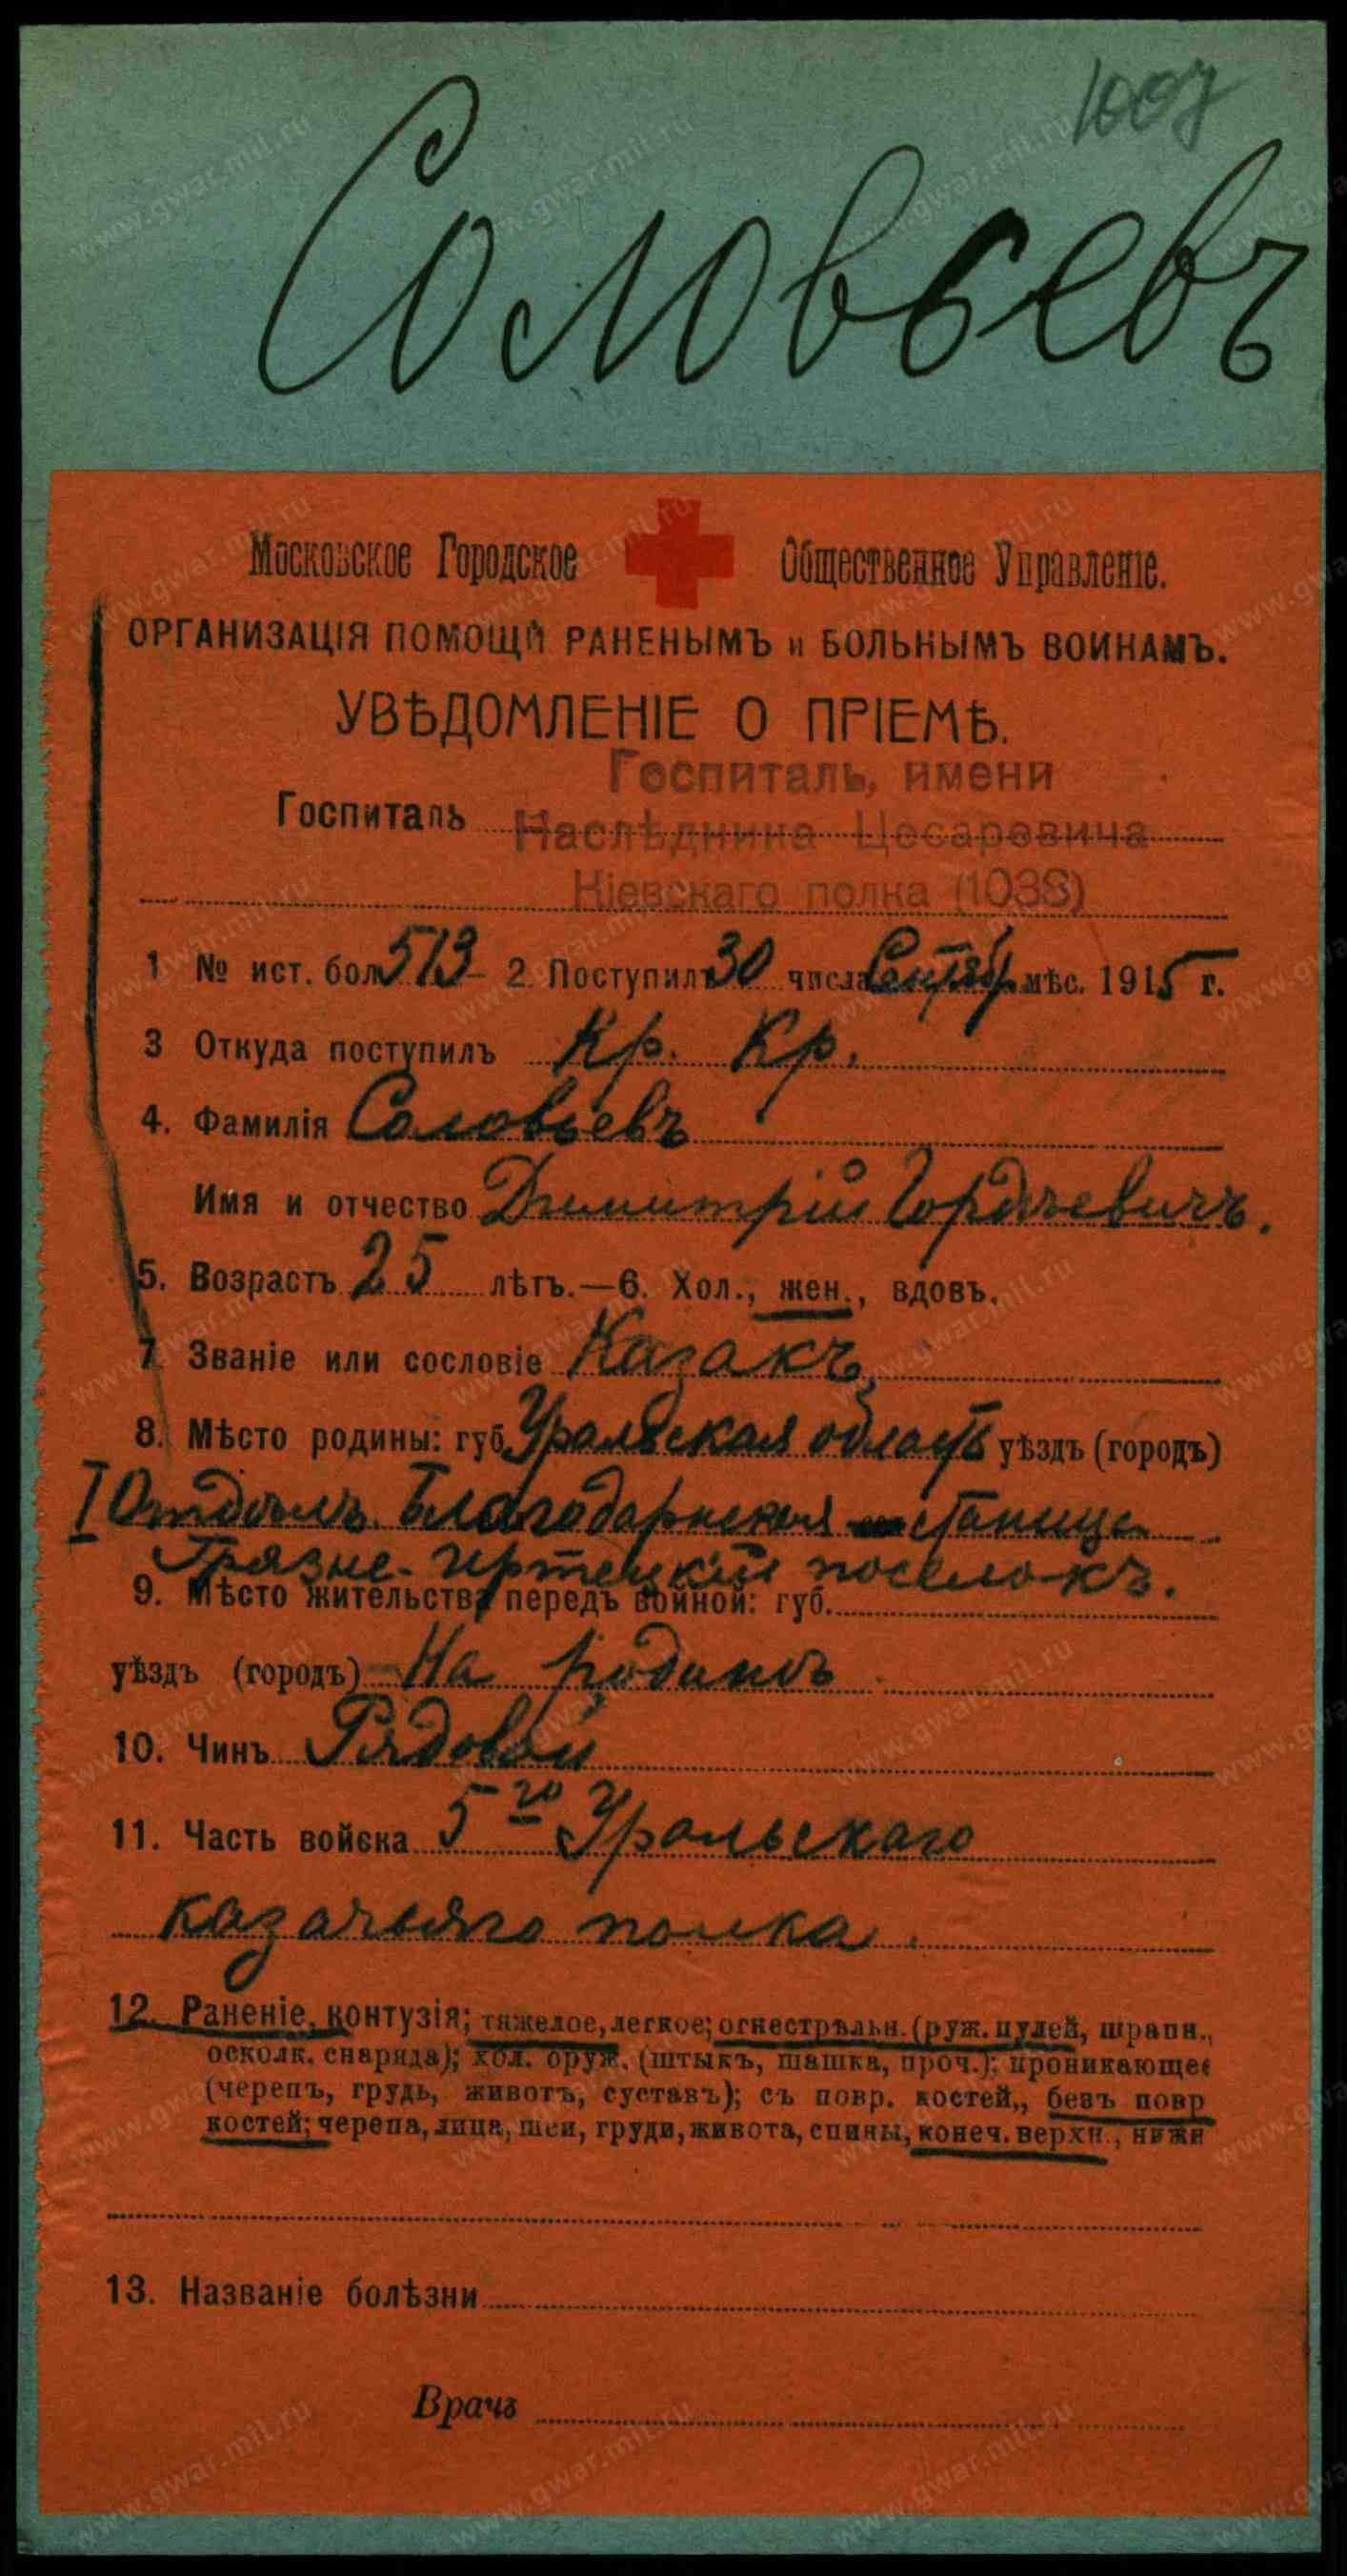 1007
Соловьевъ
Московское Городское Общественное Управленіе.
ОРГАНИЗАЦІЯ ПОМОЩИ РАНЕНЫМЪ и БОЛЬНЫМЪ ВОИНАМЪ.
УВѢДОМЛЕНІЕ О ПРІЕМѢ.
Госпиталь, имени
Госпиталь Наслѣдника Цесаревича
Кіевскаго полка (1038)
1 № ист. бол. 513 - 2 Поступилъ 30 числа Сентябр. мѣс. 1915 г.
3 Откуда поступилъ Кр. Кр.
4. Фамилія Соловьевъ
Имя и отчество Димитрій Гордѣевичъ.
5. Возрастъ 25 лѣтъ.—6. Хол., жен., вдовъ.
7. Званіе или сословіе Казакъ
8. Мѣсто родины: губ. Уральская область уѣздъ (городъ)
I Отдѣлъ Благодарнская станица
Грязно-Иртецкій поселокъ.
9. Мѣсто жительства передъ войной: губ.
уѣздъ (городъ) На родинѣ
10. Чинъ Рядовой
11. Часть войска 5го Уральскаго
казачьяго полка.
12. Раненіе, контузія; тяжелое, легкое; огнестрѣльн. (руж. пулей, шрапн.,
осколк. снаряда); хол. оруж. (штыкъ, шашка, проч.); проникающее
(черепъ, грудь, животъ, суставъ); съ повр. костей,, безъ повр
костей; черепа, лица, шеи, груди, живота, спины, конеч. верхн., нижн
13. Названіе болѣзни
Врачъ
www.gwar.mil.ru